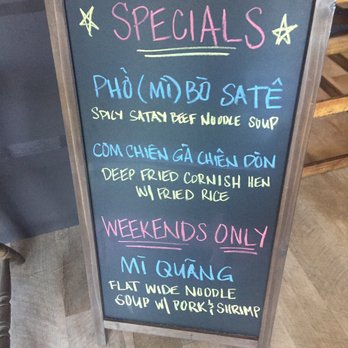 SPECIALS
PHỞ (MÌ) BÒ SATÊ
SPICY SATAY BEEF NOODLE SOUP
CƠM CHIÊN GÀ CHIÊN DÒN
DEEP FRIED CORNISH HEN
W/ FRIED RICE
WEEKENDS ONLY
MÌ QUÃNG
FLAT WIDE NOODLE
SOUP W/ PORK & SHRIMP